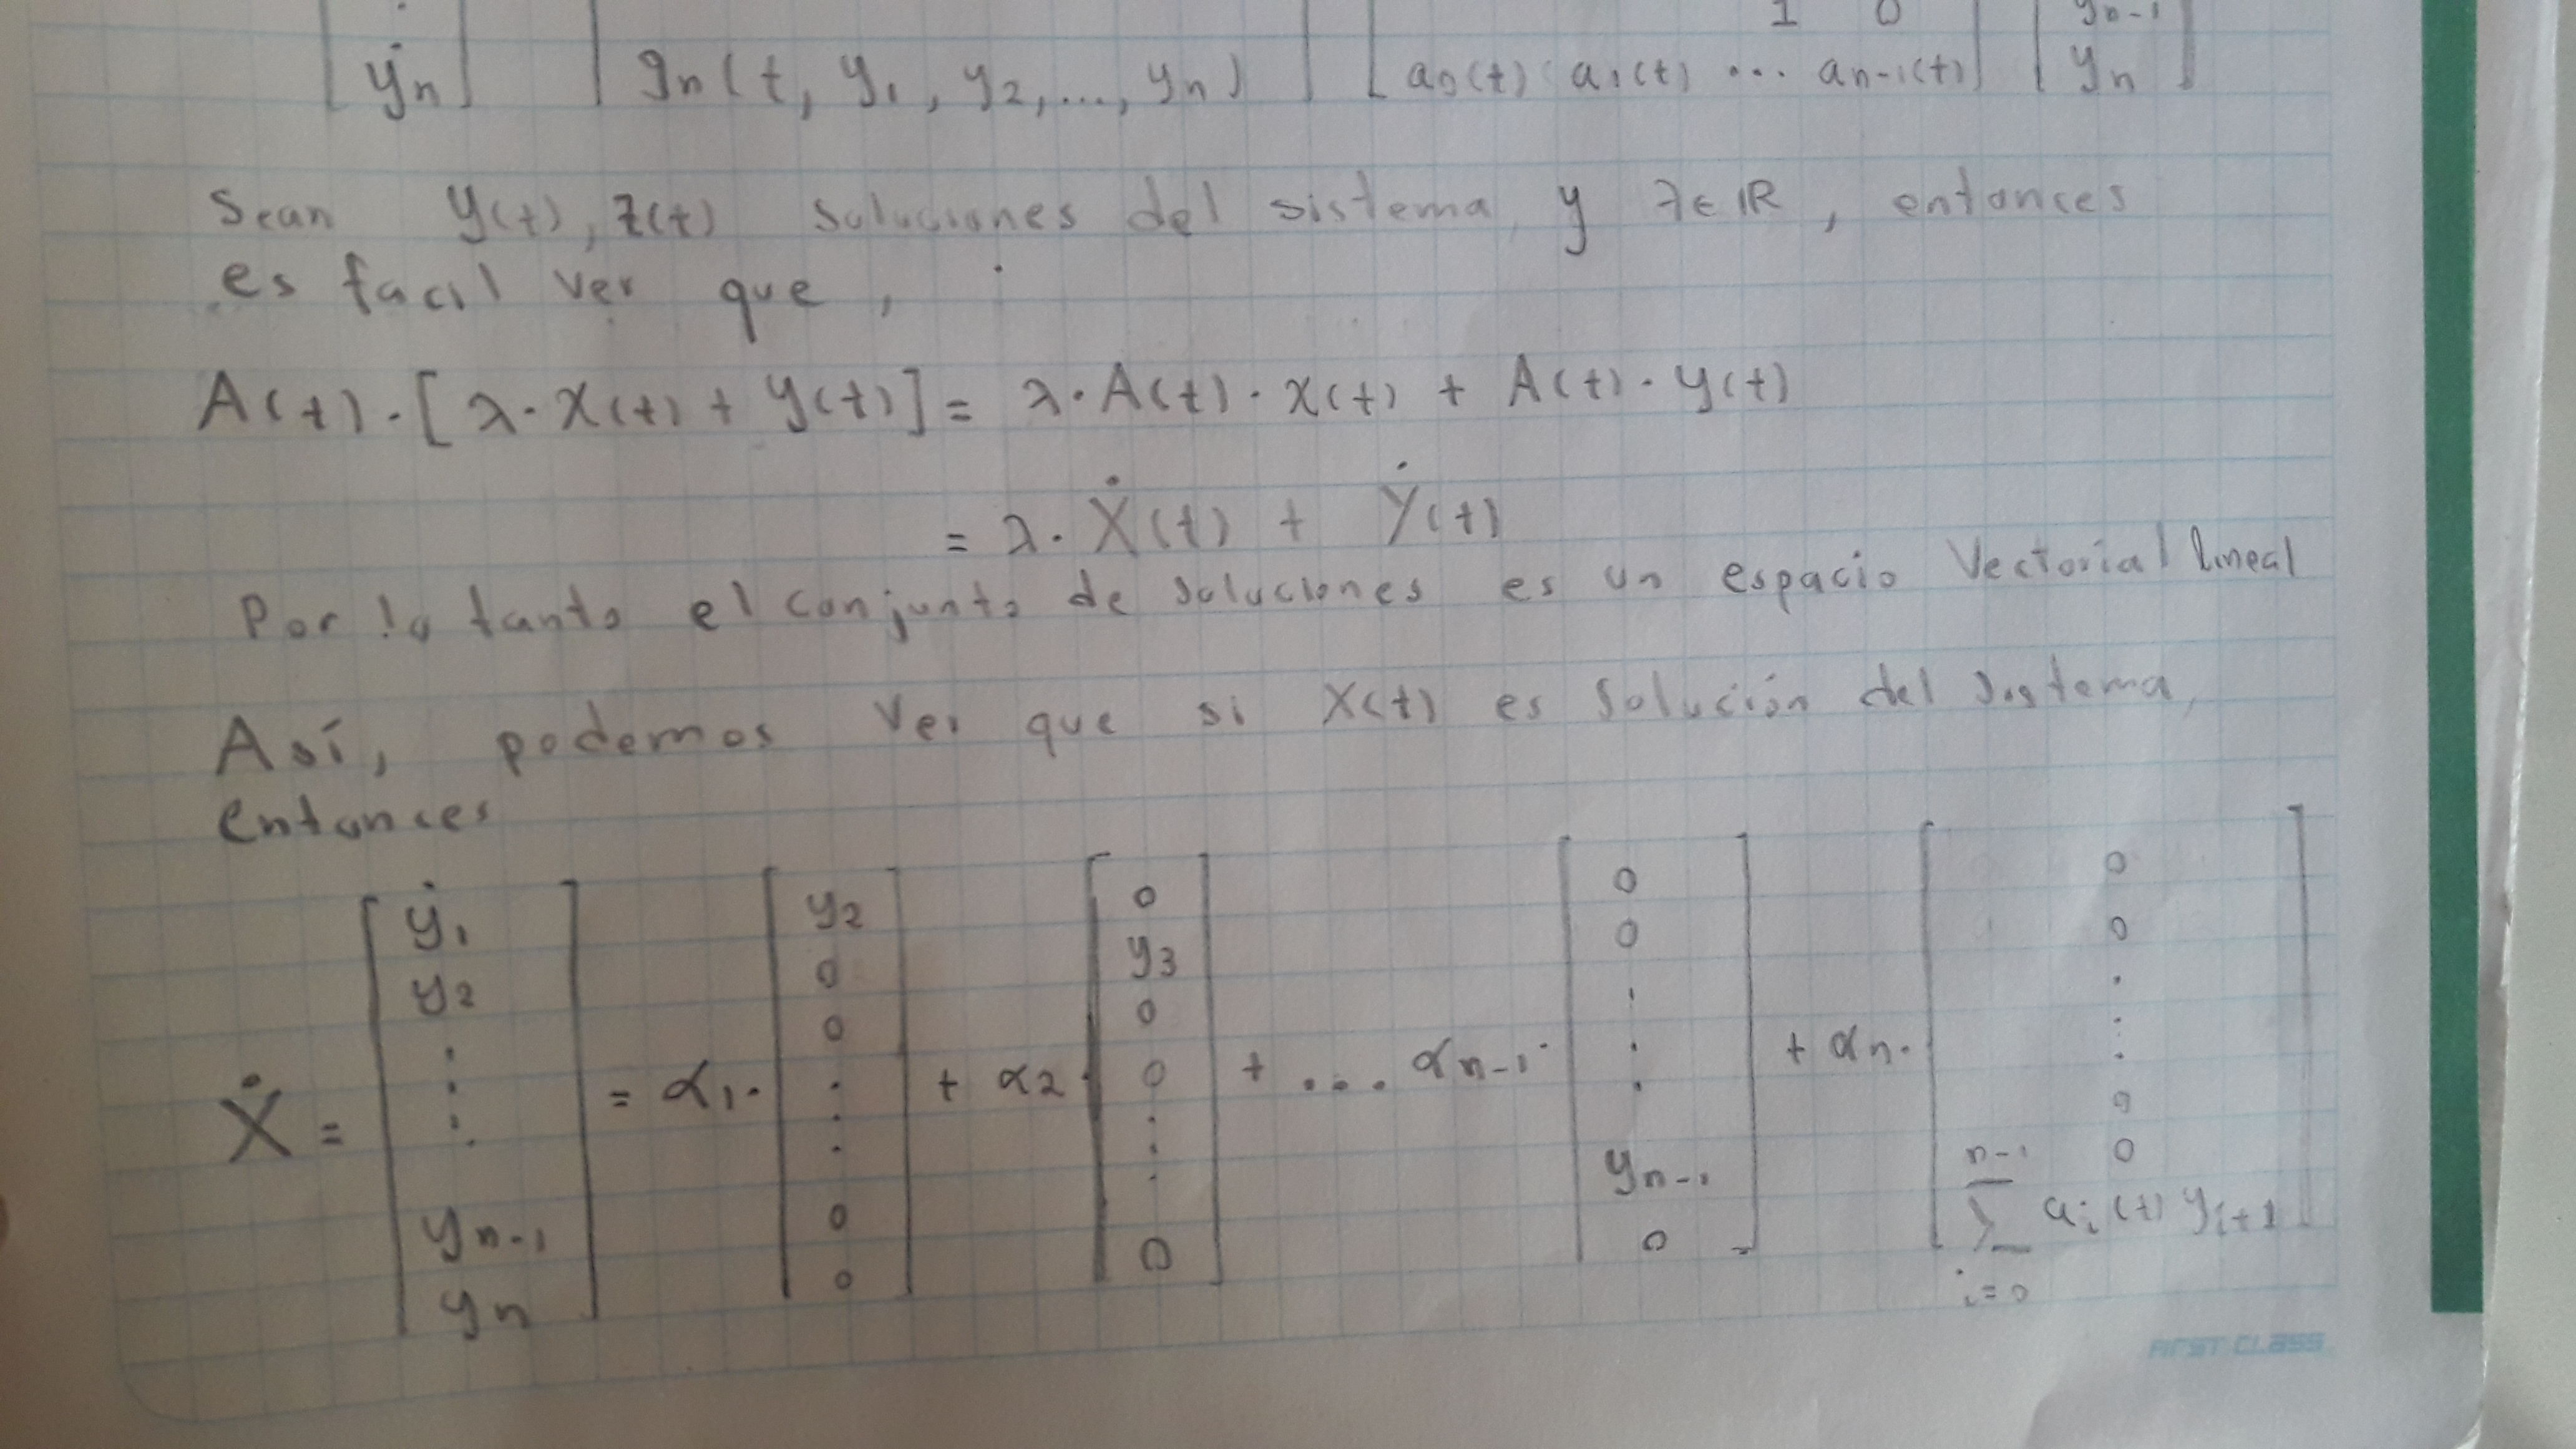 1 0 yn-1
ẏn gn(t, y1, y2, ..., yn) a0(t) a1(t) ... an-1(t) yn
Sean y(t), z(t) soluciones del sistema, y λ∈ℝ, entonces
es facil ver que,
A(t)·[λ·X(t) + y(t)] = λ·A(t)·x(t) + A(t)·y(t)
= λ·Ẋ(t) + Ẏ(t)
Por lo tanto el conjunto de soluciones es un espacio Vectorial lineal
Así, podemos ver que si X(t) es solución del sistema,
entonces
Ẋ = [ẏ1 y2 ⋮ yn-1 yn] = α1·[y2 0 0 ⋮ 0 0] + α2·[0 y3 0 0 ⋮ 0] + ... αn-1·[0 0 ⋮ yn-1 0] + αn·[0 0 ⋮ 0 0 ∑_{i=0}^{n-1} ai(t) yi+1]
FIRST CLASS